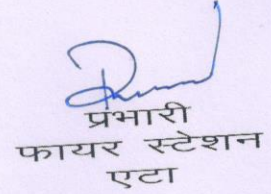 प्रभारी
फायर स्टेशन
एटा